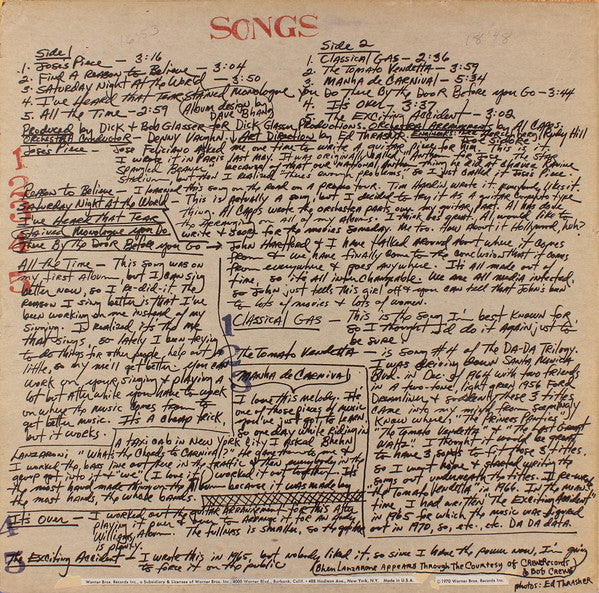 SONGS
Side 1
1. Joses Piece — 3:16
2. Find A Reason to Believe — 3:04
3. Saturday Night At the World — 3:50
4. I've Heard That Tear Stained Monologue You Do There By The Door Before you Go — 3:44
5. All the Time — 2:59 (Album design by Dave Bhang)
Side 2
1. Classical Gas — 2:36
2. The Tomato Vendetta — 3:59
3. Manha de Carnival — 5:34
4. It's Over — 3:37
5. The Exciting Accident — 3:02
Produced by Dick & Bob Glasser for Dick Glasser Productions. Orchestral Arrangements by Al Capps.
Denny Vaughn Art Direction by Ed Thrasher Engineers
Rudy Hill
Joe Sidore
Joses Piece — Jose Feliciano asked me one time to write a guitar piece for him
I wrote it in Paris last May. It was originally called
Spangled Banner because
Stadium — then I realized there's enough problems, so I just called it Joses Piece.
Reason to Believe — I learned this song on the road on a promo tour. Tim Hardin wrote it. Everybody likes it.
Saturday Night At the World — This is actually a song, but I decided to try it as a guitar concerto type
thing. Al Capps wrote the orchestra parts over my guitar part. Al has done
the arrangements on all of my albums. I think he's great. Al would like to
write & score for the movies someday. Me too. How about it Hollywood, huh?
I've Heard That Tear
Stained Monologue you Do
There By The Door Before
you Go → John Hartford & I have talked around about where it comes
from & we have finally come to the conclusion that it comes
from everywhere & goes anywhere. It's all made out of
time. So it's All interchangeable. We are All media infected.
So John just tells this girl off & you can tell that John's been
to lots of movies & lots of women.
All the Time — This song was on
my first album, but I can sing
better now, so I re-did it. The
reason I sing better is that I've
been working on me instead of my
singing. I realized it's the me
that sings, so lately I been trying
to do things for other people, help out a
little, so my me'll get better. You can
work on your singing & playing a
lot but after while you have to work
on where the music comes from to
get better music. It's a cheap trick,
but it works.
Classical Gas — This is the song I'm best known for,
so I thought I'd do it again just to
be sure.
The Tomato Vendetta — is Song #4 of the DA-DA Trilogy.
I was driving down Santa Monica
Blvd. in Dec. of 1964 with two friends
in a two-tone, light green 1956 Ford
& suddenly these 3 titles
came into my mind from seemingly
know where; "The Princes Phone",
"The Tomato Vendetta" & "The Last Great
Waltz." I thought it would be great
to have 3 songs to fit those 3 titles.
So I went home & started writing the
songs out underneath the titles. I
the Tomato Vendetta in 1966. In the mean
time I had written "The Exciting Accident"
in 1965 for which the music was figured
out in 1970, so, etc. etc. DA DA DATA.
Manha de Carnival
I love this melody. It's
one of those pieces of music
you've just got to learn
so one day while riding in
a taxi cab in New York City I asked Bhen
Lanzaroni "What's the Chords to Carnival?" He gave to me &
I worked the bass line out there in the traffic &
It's
the most hand made thing on the Album because it was made by
the most hands, the whole bands.
It's Over — I worked out the guitar arrangement for this after
playing it over & over to arrange it for an Andy
Williams Album. The fullness is smaller, so the guitar
is plenty.
The Exciting Accident — I wrote this in 1965, but nobody liked it, so since I have the power now, I'm going
to force it on the public
Bhen Lanzaroni Appears Through The Courtesy of Crewe Records
& Bob Crewe
photos: Ed Thrasher
Warner Bros. Records Inc., a Subsidiary & Licensee of Warner Bros. Inc., 4000 Warner Blvd., Burbank, Calif. • 488 Madison Ave., New York, N.Y. Made in U.S.A. ©1970 Warner Bros. Records Inc.